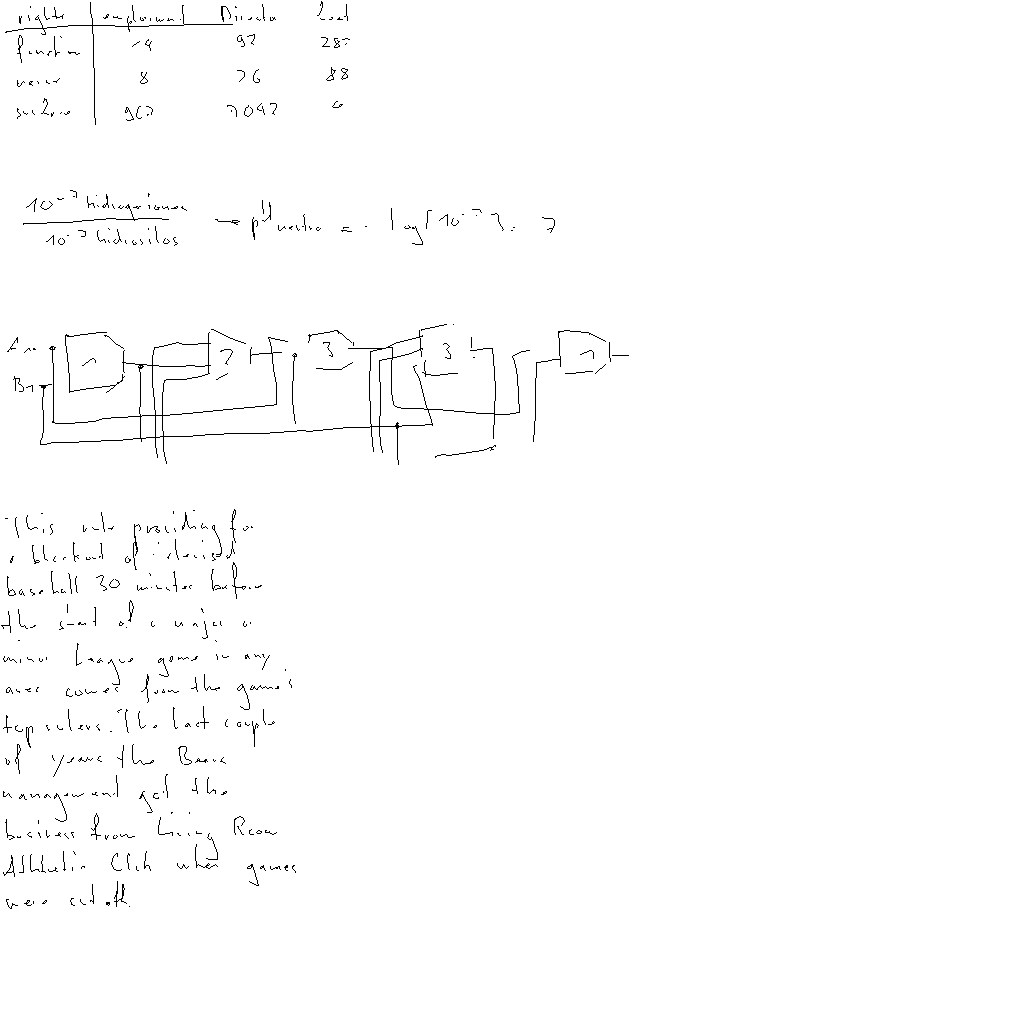 rights employment Directa load
function 14 92 287
never 8 76 88
967 7047
10⁻⁷ hidrogeniones
10⁻⁷ hidroxilos → pH neutro = - log [10⁻⁷] = 7
A
B
1 2 3 3 1
This rule providing for
a blackout of televised
baseball 30 minutes before
the start of a major or
minor League game in any
area comes from the game's
top rulers. The last couple
of years the Bears
management got the
business from Living Room
Athletic Club when games
were cut off.